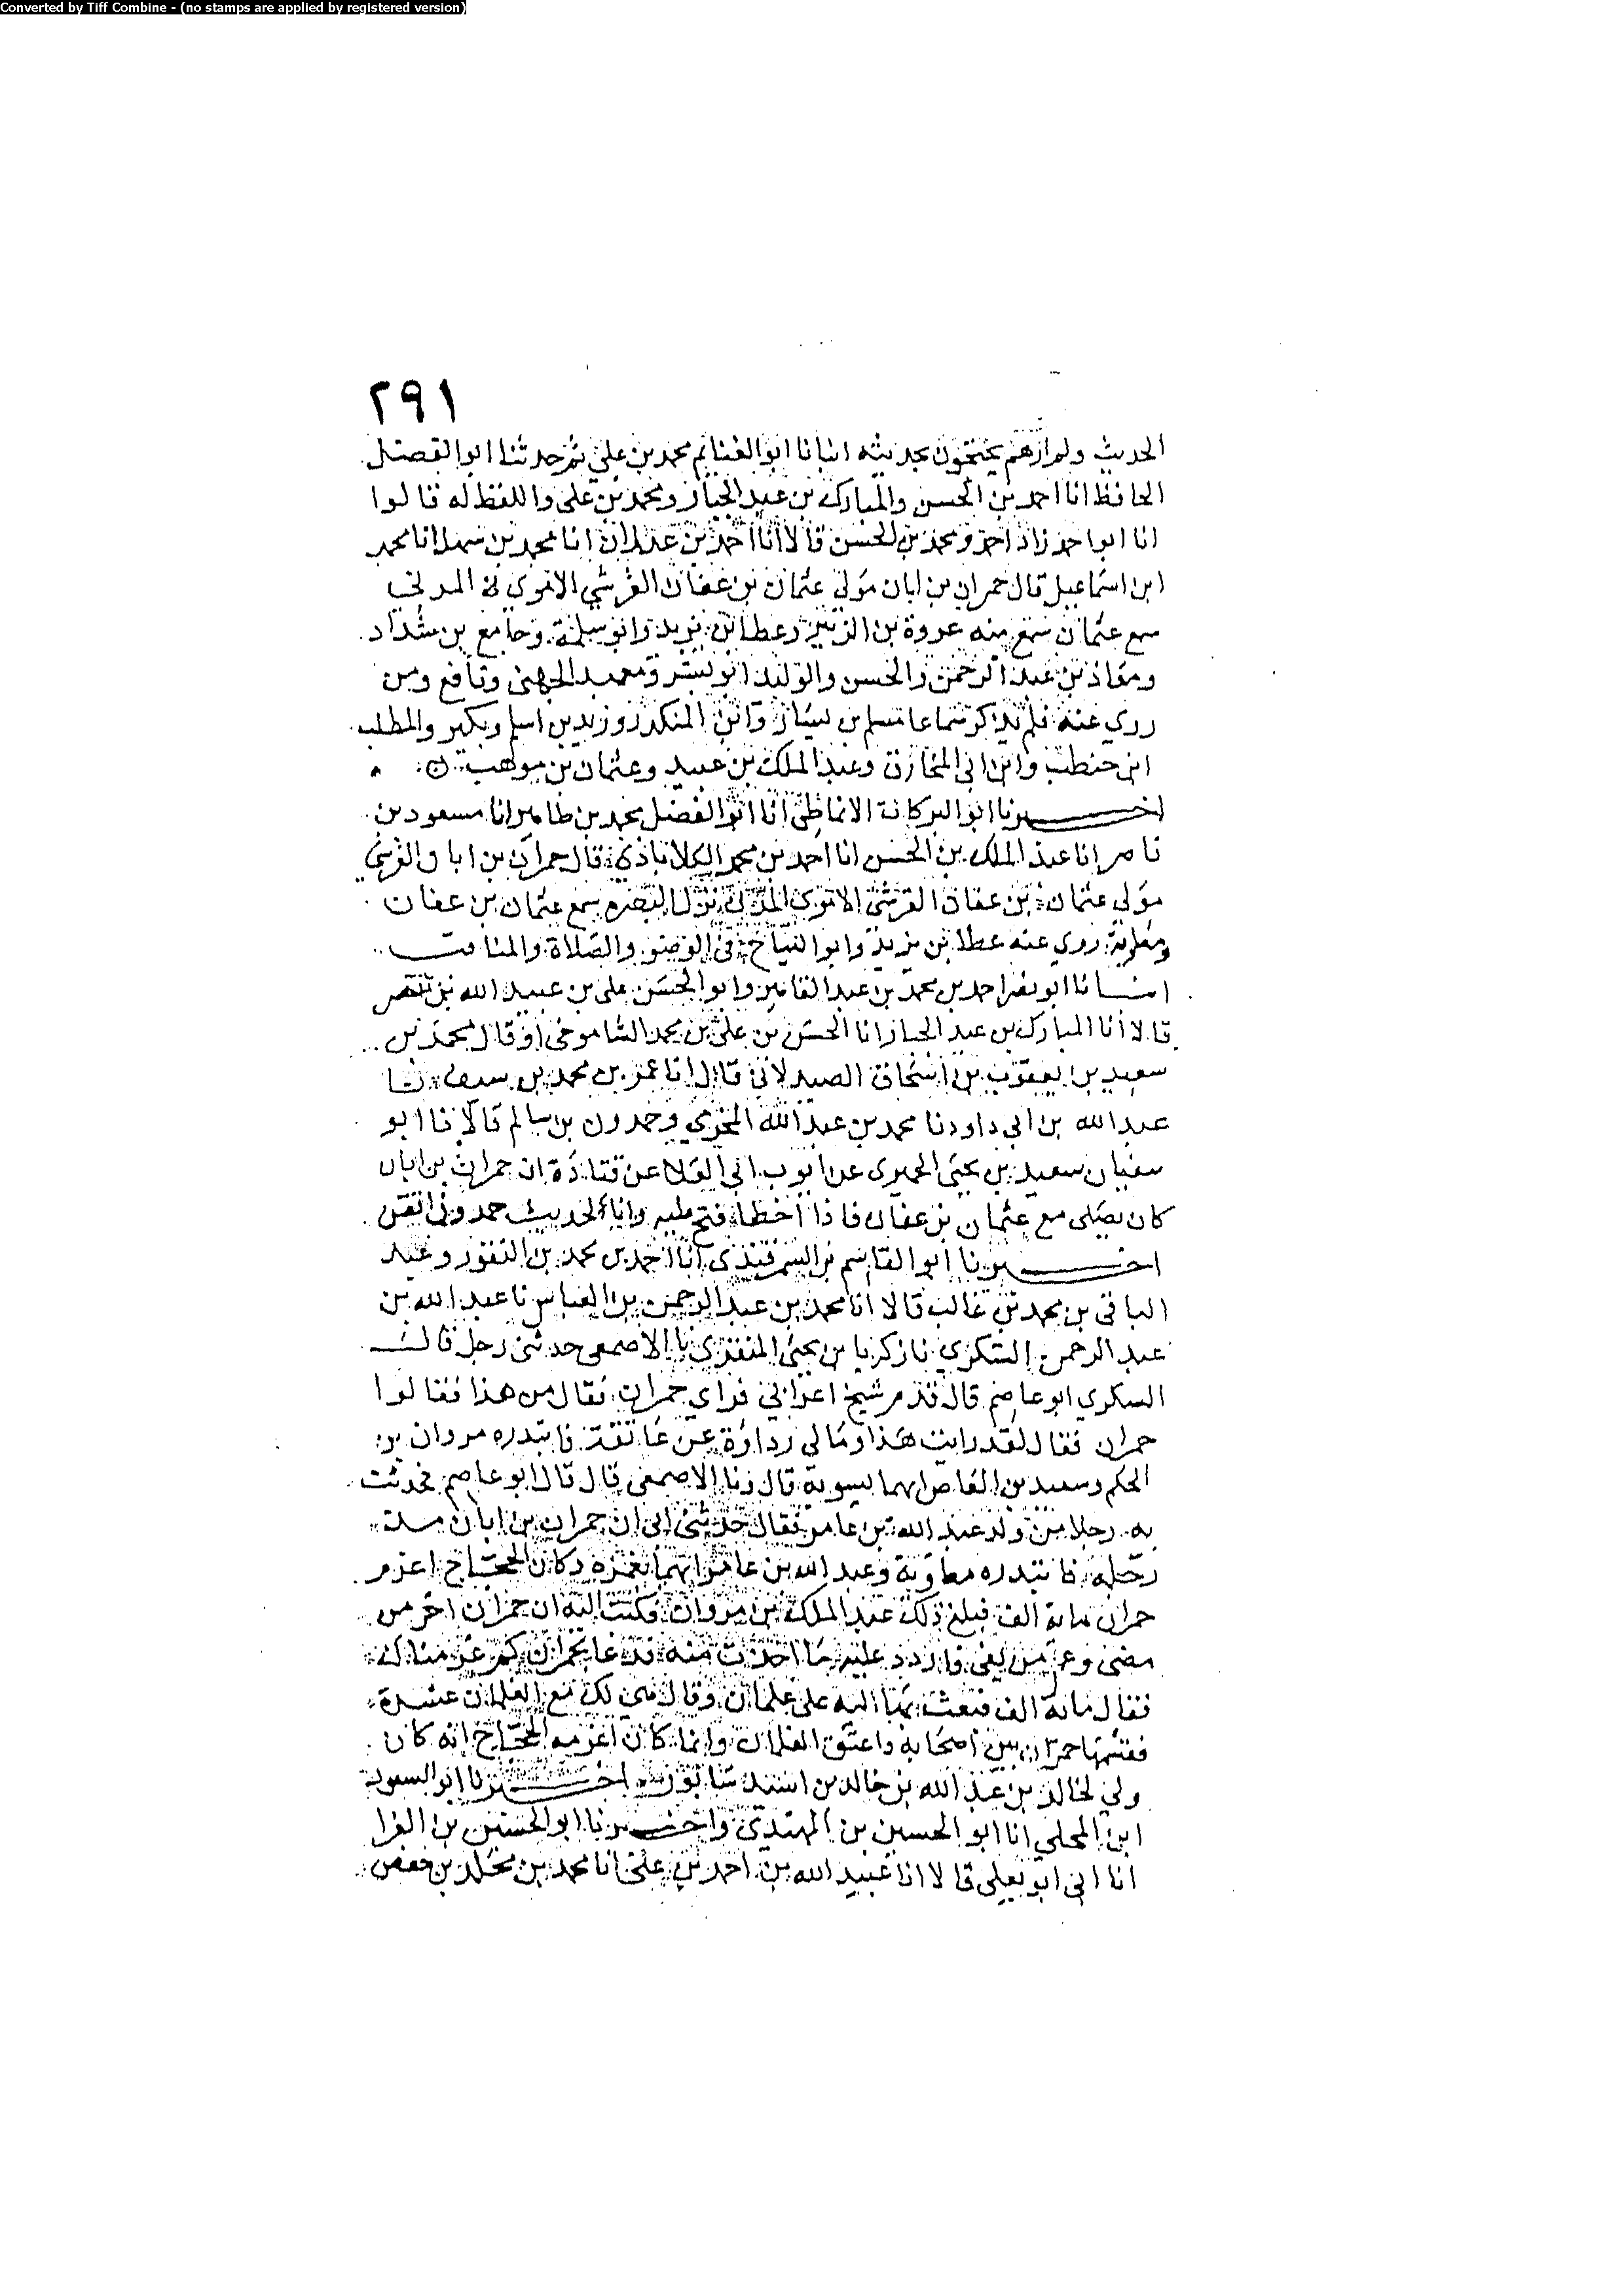 Converted by Tiff Combine - (no stamps are applied by registered version)
٢٩١
الحديث ولم ارهم يحتجون بحديثه انبانا ابو الغنايم محمد بن علي ثم حدثنا ابو الفضل
الحافظ انا احمد بن الحسن والمبارك بن عبد الجبار ومحمد بن علي واللفظ له قالوا
انا ابو احمد زاد احمد ومحمد بن الحسن قالا انا احمد بن عبدان انا محمد بن سهل انا محمد
ابن اسماعيل قال حمران بن ابان مولى عثمان بن عفان القرشي الاموي المدني
سمع عثمان سمع منه عروة بن الزبير وعطا بن يزيد وابو سلمة وجامع بن شداد
ومعاذ بن عبد الرحمن والحسن والوليد ابو بشر ومعبد الجهني ونافع ومن
روي عنه فلم يذكر سماعا مسلم بن يسار وابن المنكدر وزيد بن اسلم وبكير والمطلب
ابن حنطب وابن ابي المخارق وعبد الملك بن عبيد وعثمان بن موهب
اخبرنا ابو البركات الانماطي انا ابو الفضل محمد بن طاهر انا مسعود بن
ناصر انا عبد الملك بن الحسن انا احمد بن محمد الكلاباذي قال حمران بن ابان القرشي
مولى عثمان بن عفان القرشي الاموي المدني نزل البصرة سمع عثمان بن عفان
ومعاوية روي عنه عطا بن يزيد وابو التياح في الوضو والصلاة والمناقب
انبانا ابو نصر احمد بن محمد بن عبد القاهر وابو الحسن علي بن عبيد الله بن نصر
قالا انا المبارك بن عبد الجبار انا الحسن بن علي بن محمد الشاموخي قال محمد بن
سعيد بن يعقوب بن اسحاق الصيدلاني قال انا عمر بن محمد بن سيف نا
عبد الله بن ابي داود نا محمد بن عبد الله المخرمي وحمدون بن سالم قالا نا ابو
سفيان سعيد بن يحيى الحميري عن ايوب ابي العلا عن قتادة ان حمران بن ابان
كان يصلى مع عثمان بن عفان فاذا اخطا فتح عليه وانا لحديث حمدون اتقن
اخبرنا ابو القاسم بن السمرقندي انا احمد بن محمد بن النقور وعبد
الباقي بن محمد بن غالب قالا انا محمد بن عبد الرحمن بن العباس نا عبد الله بن
عبد الرحمن السكري نا زكريا بن يحيى المنقري نا الاصمعي حدثني رجل قال
السكري ابو عاصم قال قدم شيخ اعرابي فراي حمران فقال من هذا فقالوا
حمران فقال لقد رايت هذا ومالي رداؤه عن عاتقه فابتدره مروان بن
الحكم وسعيد بن العاص ايهما يسويه قال ونا الاصمعي قال قال ابو عاصم فحدثت
به رجلا من ولد عبد الله بن عامر فقال حدثني ابي ان حمران بن ابان مد
رجله فابتدره معاوية وعبد الله بن عامر ايهما يغمزه وكان الحجاج اغرم
حمران مائة الف فبلغ ذلك عبد الملك بن مروان فكتب اليه ان حمران اخو من
مضى وعم من بقي فاردد عليه ما اخذت منه فدعا بحمران كم غرمناك
فقال مائة الف فبعث بها اليه على غلمان وقال هي لك مع الغلمان عشرة
فقسمها حمران بين اصحابه واعتق الغلمان وانما كان اغرمه الحجاج انه كان
ولي لخالد بن عبد الله بن خالد بن اسيد سابور اخبرنا ابو السعود
ابن المجلي انا ابو الحسين بن المهتدي واخبرنا ابو الحسين بن الفرا
انا ابي ابو يعلى قالا انا عبيد الله بن احمد بن علي انا محمد بن مخلد بن حفص